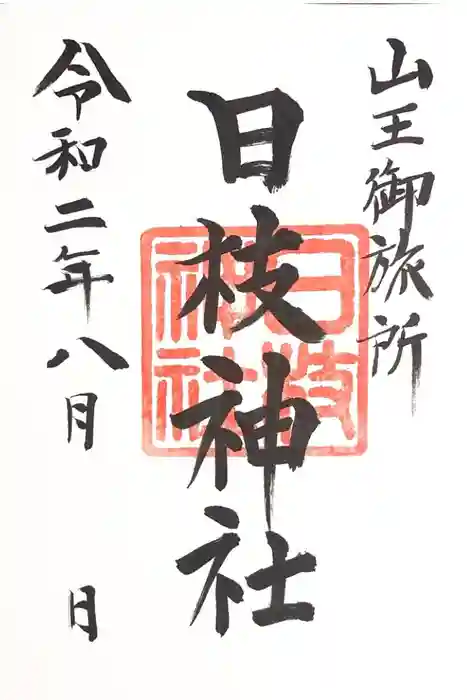 山王御旅所
日枝神社
日枝
神社
令和二年八月 日